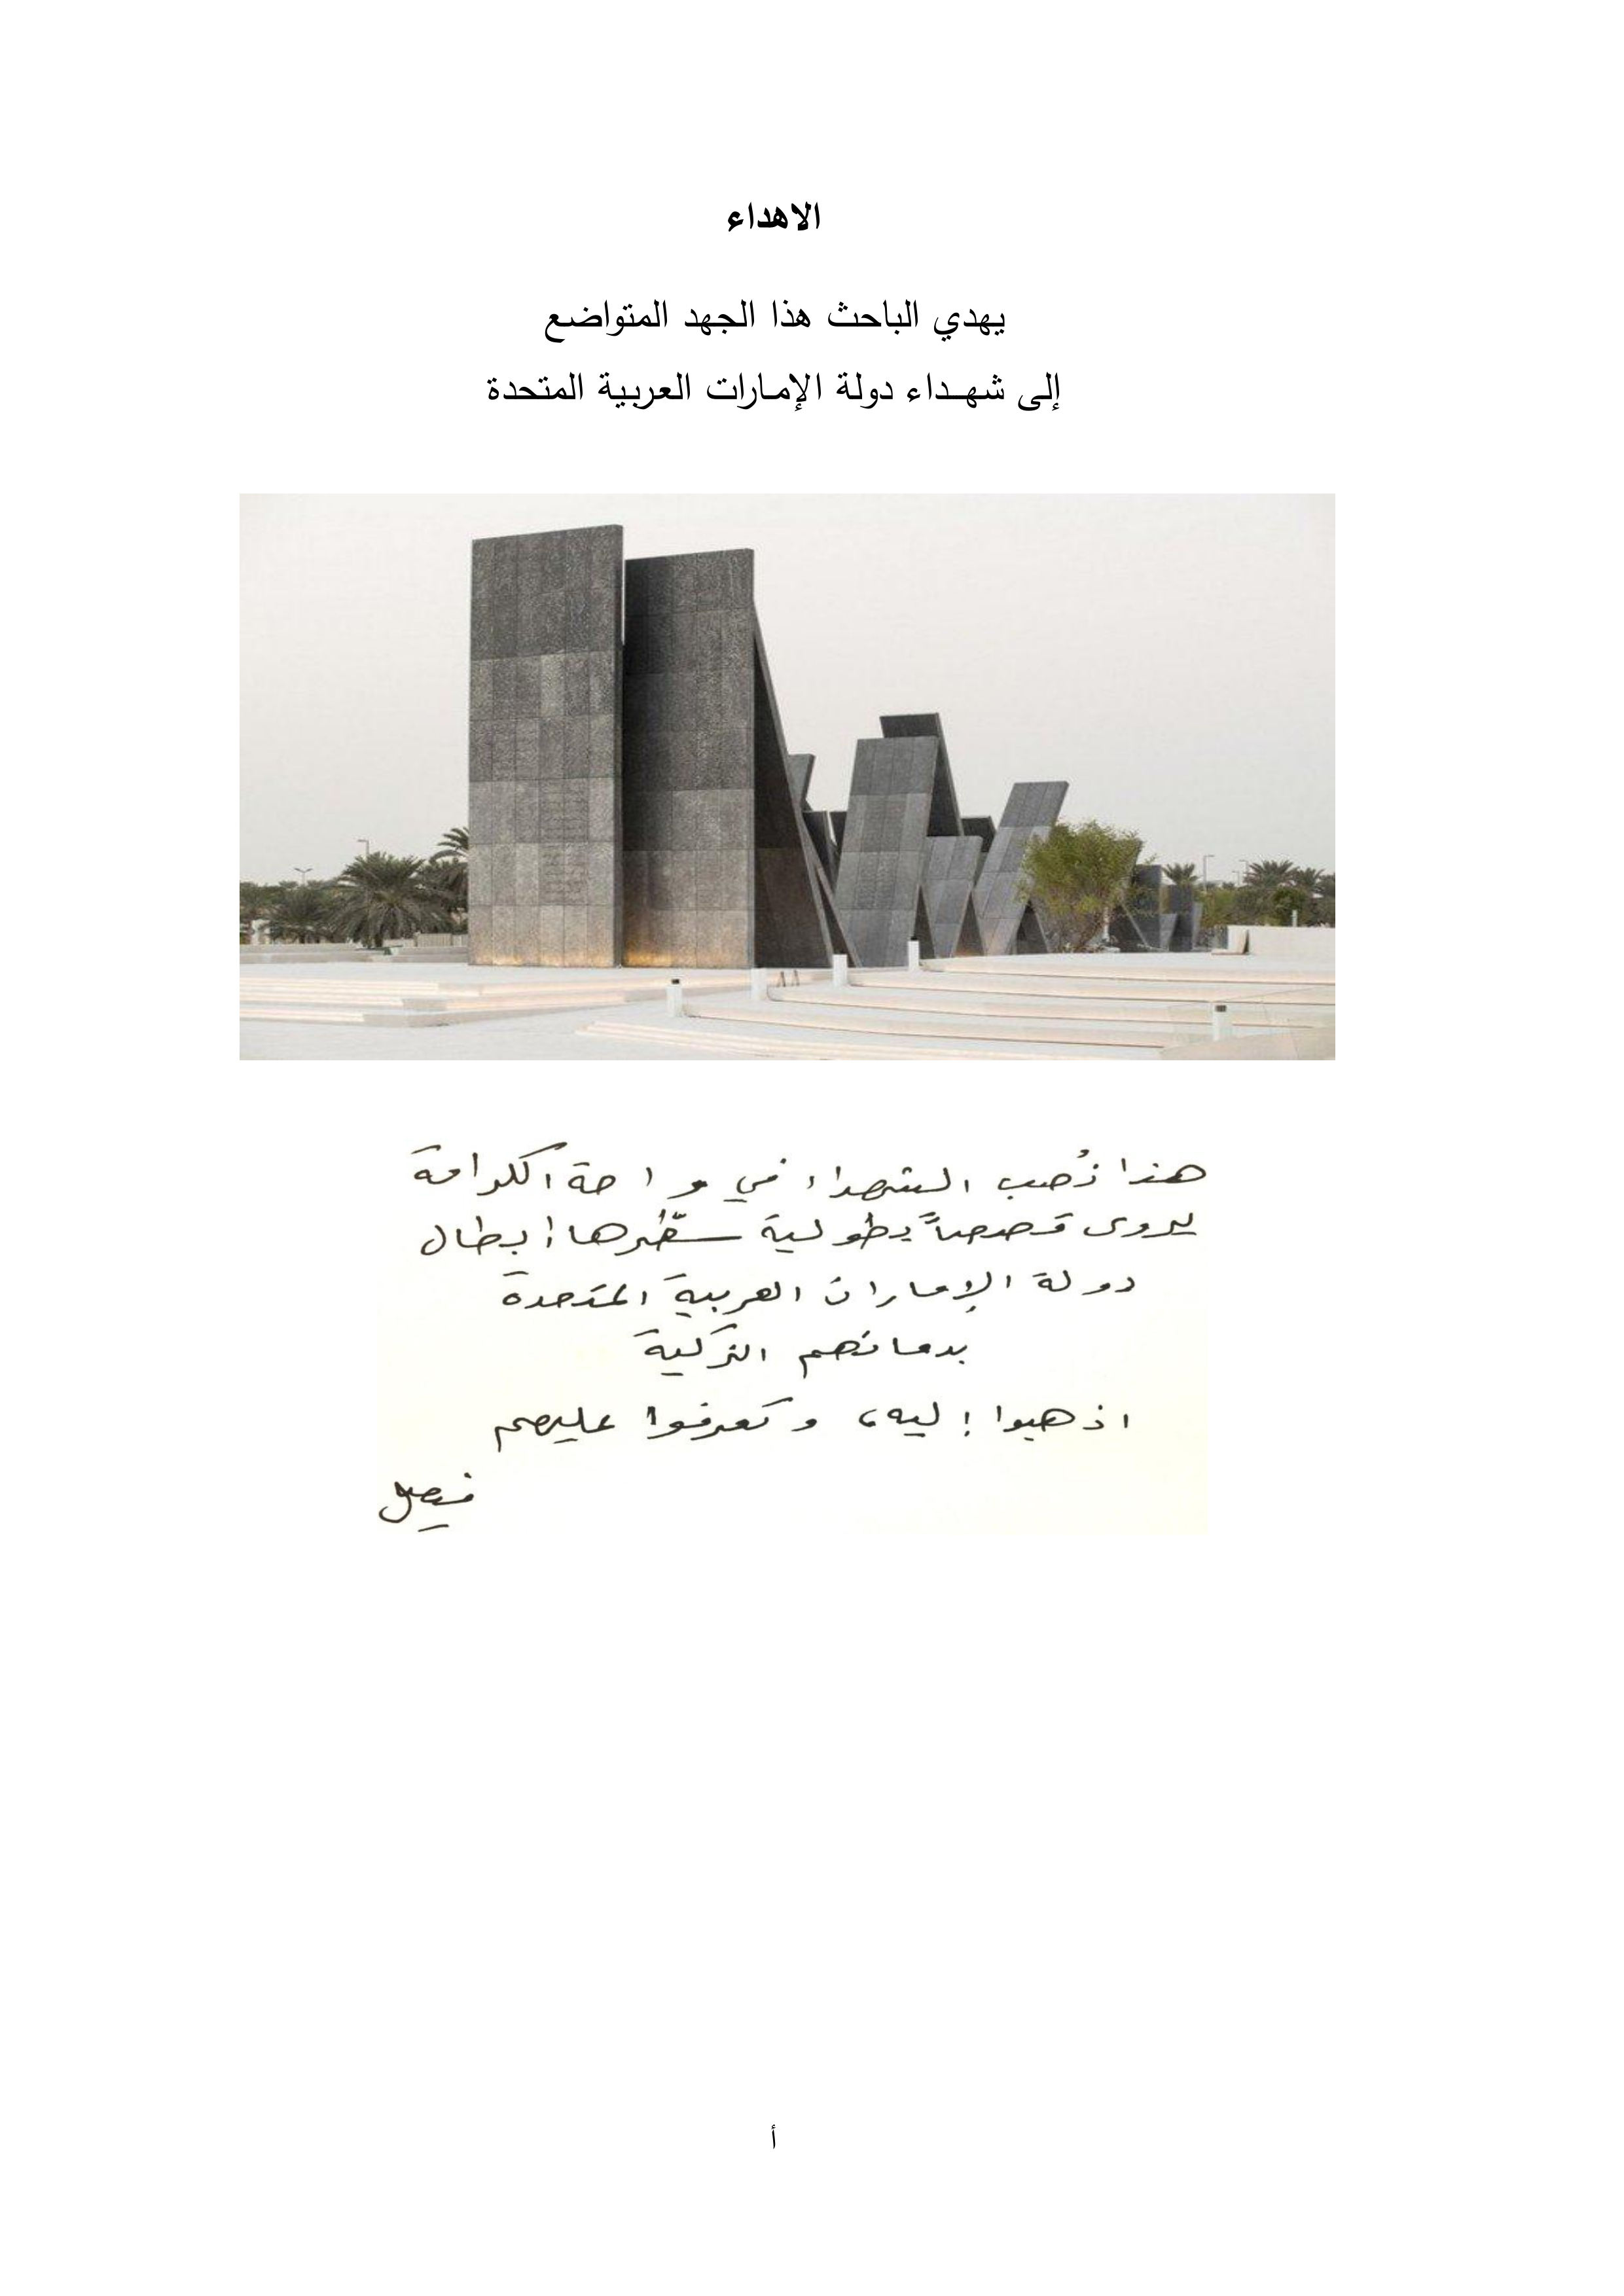 الاهداء
يهدي الباحث هذا الجهد المتواضع
إلى شهــداء دولة الإمارات العربية المتحدة
هذا نُصب الشهداء في واحة الكرامة
يروى قصصاً بطولية سطّرها أبطال
دولة الإمارات العربية المتحدة
بدمائهم الزكية
اذهبوا إليه، وتعرفوا عليهم
فيصل
أ